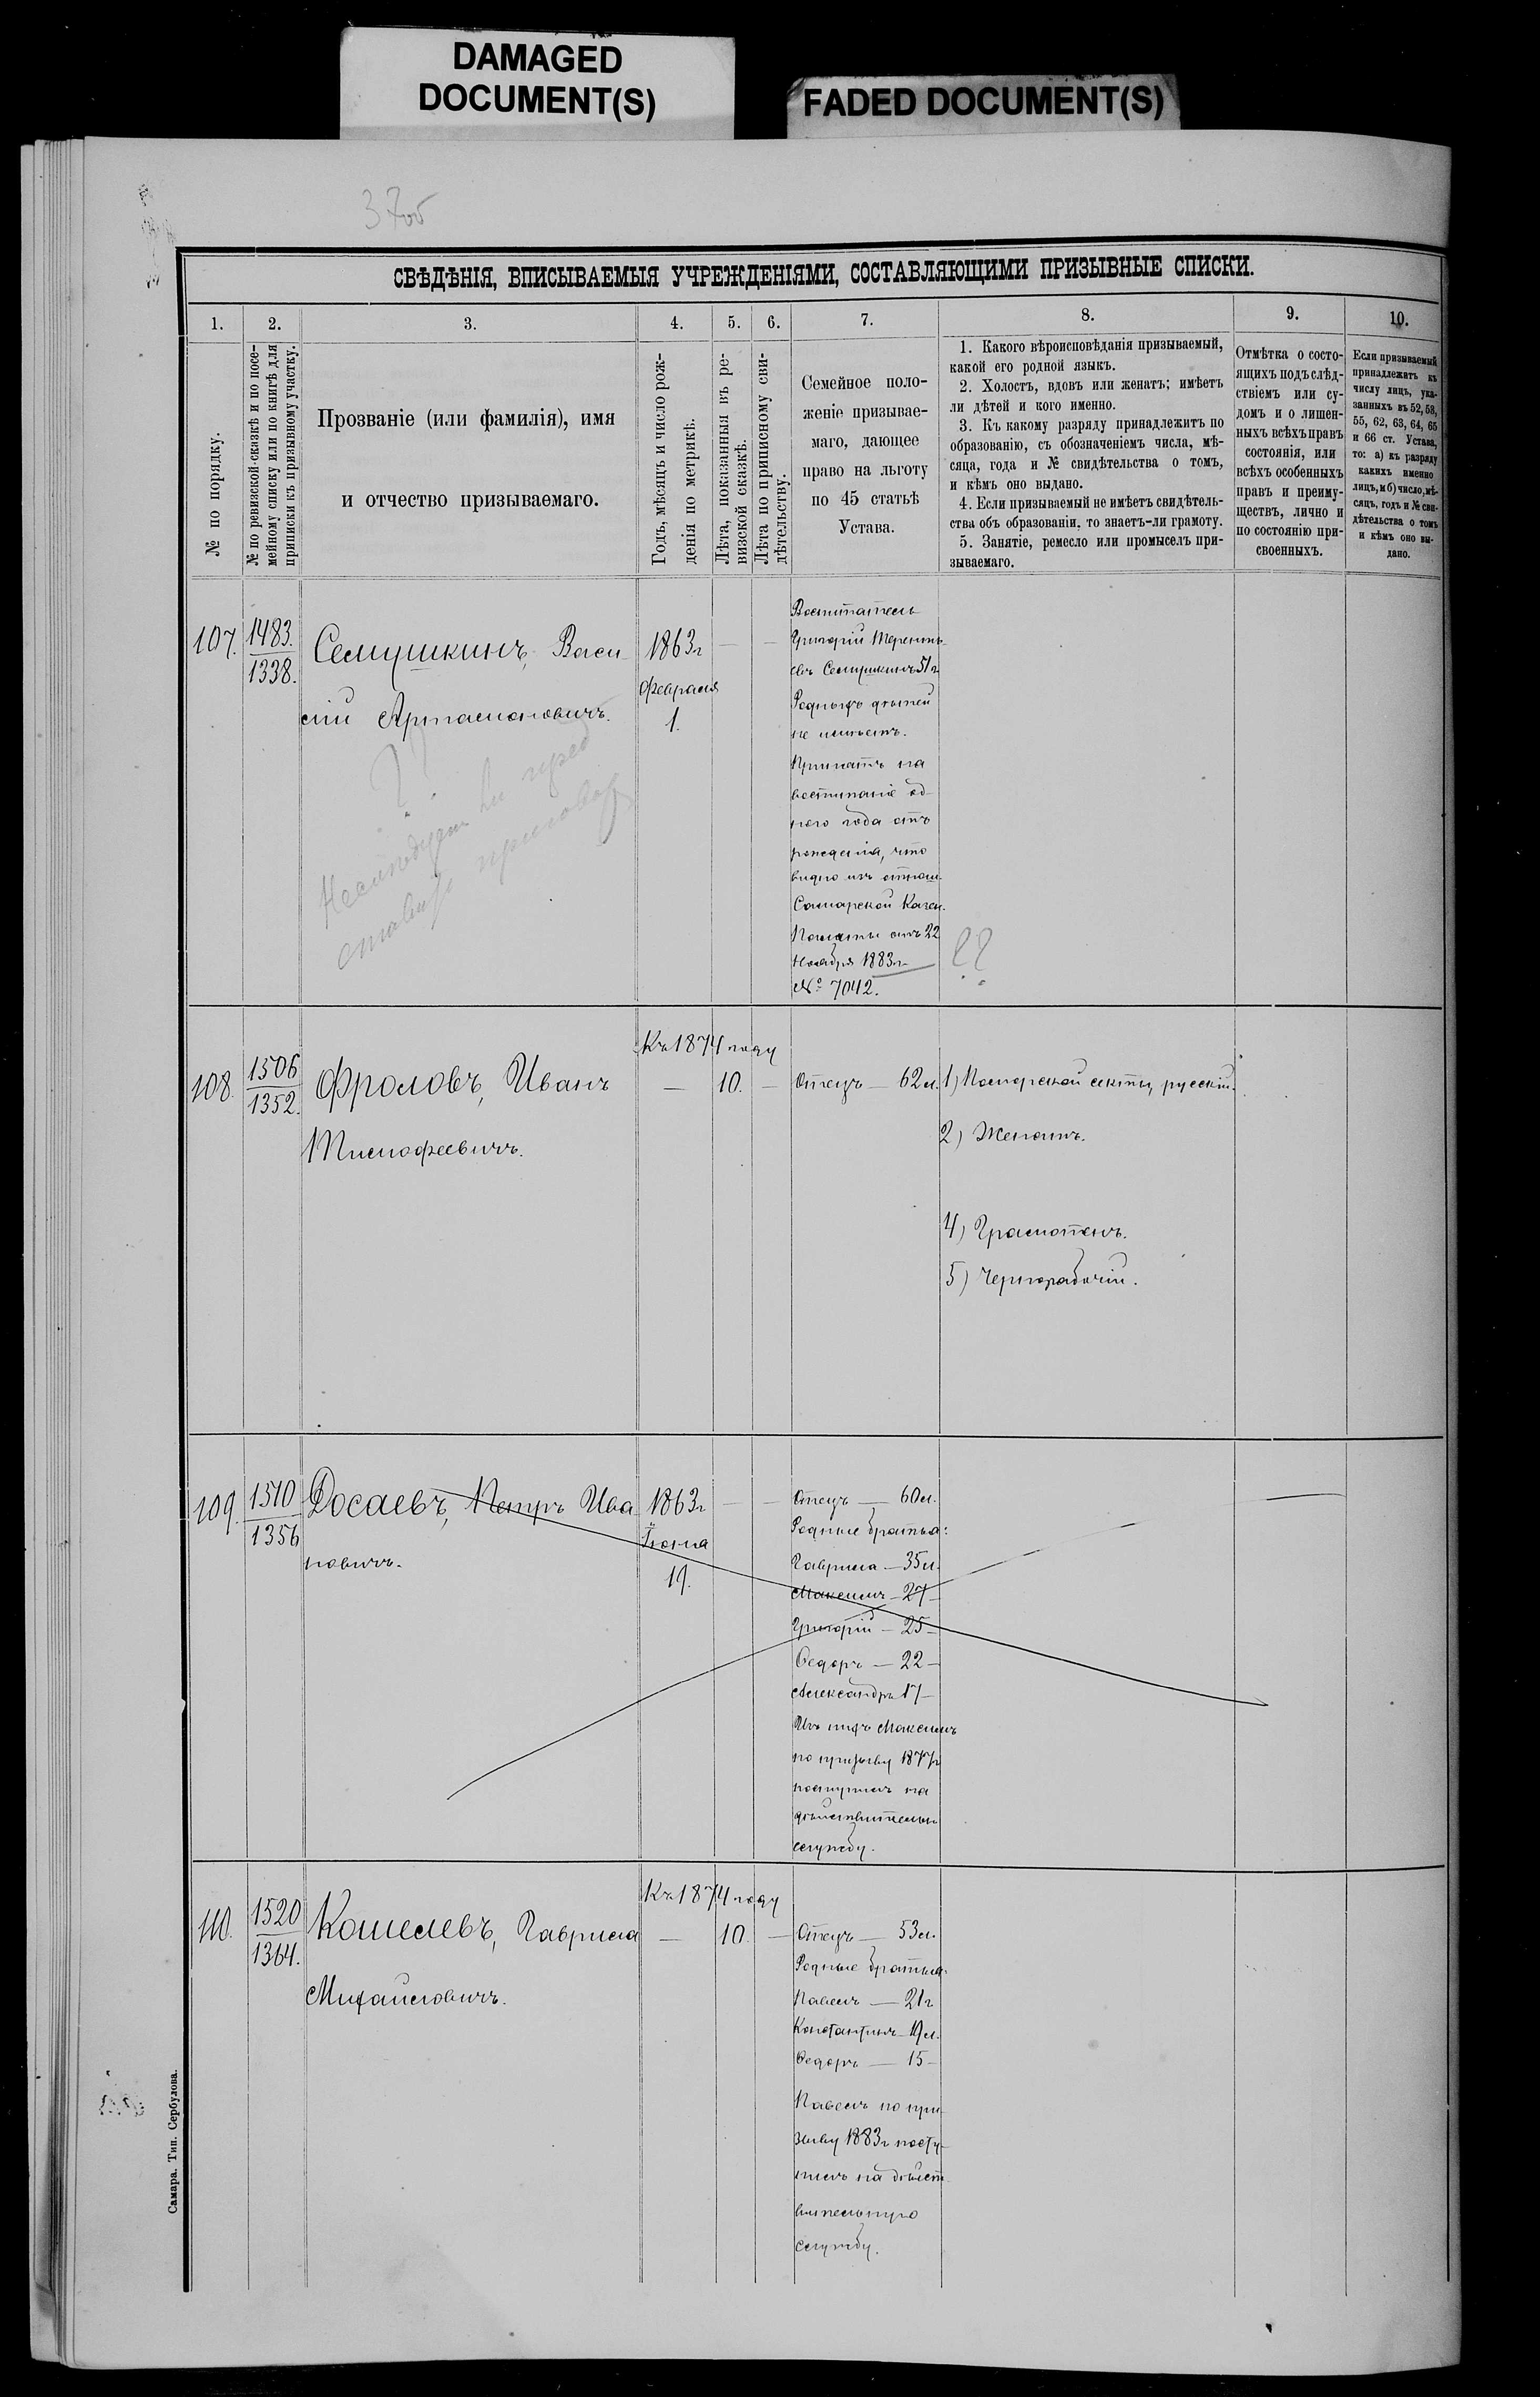 DAMAGED
DOCUMENT(S)
FADED DOCUMENT(S)
37об
СВѢДѢНІЯ, ВПИСЫВАЕМЫЯ УЧРЕЖДЕНІЯМИ, СОСТАВЛЯЮЩИМИ ПРИЗЫВНЫЕ СПИСКИ.
1.
2.
3.
4.
5.
6.
7.
8.
9.
10.
№ по порядку.
№ по ревизской-сказкѣ и по посе-
мейному списку или по книгѣ для
приписки къ призывному участку.
Прозваніе (или фамилія), имя
и отчество призываемаго.
Годъ, мѣсяцъ и число рож-
денія по метрикѣ.
Лѣта, показанныя въ ре-
визской сказкѣ.
Лѣта по приписному сви-
дѣтельству.
Семейное поло-
женіе призывае-
маго, дающее
право на льготу
по 45 статьѣ
Устава.
1. Какого вѣроисповѣданія призываемый,
какой его родной языкъ.
2. Холостъ, вдовъ или женатъ; имѣетъ
ли дѣтей и кого именно.
3. Къ какому разряду принадлежитъ по
образованію, съ обозначеніемъ числа, мѣ-
сяца, года и № свидѣтельства о томъ,
и кѣмъ оно выдано.
4. Если призываемый не имѣетъ свидѣтель-
ства объ образованіи, то знаетъ-ли грамоту.
5. Занятіе, ремесло или промыселъ при-
зываемаго.
Отмѣтка о состо-
ящихъ подъ слѣд-
ствіемъ или су-
домъ и о лишен-
ныхъ всѣхъ правъ
состоянія, или
всѣхъ особенныхъ
правъ и преиму-
ществъ, лично и
по состоянію при-
своенныхъ.
Если призываемый
принадлежитъ къ
числу лицъ, ука-
занныхъ въ 52, 53,
55, 62, 63, 64, 65
и 66 ст. Устава,
то: а) къ разряду
какихъ именно
лицъ, и б) число, мѣ-
сяцъ, годъ и № сви-
дѣтельства о томъ
и кѣмъ оно вы-
дано.
107.
1483.
1338.
Семушкинъ, Васи-
лій Артамоновичъ.
1863г
Февраля
1.
—
—
Воспитатель
Григорій Терентъ-
евъ Семушкинъ 51г.
Родныхъ дѣтей
не имѣетъ.
Принятъ на
воспитаніе од-
ного года отъ
рожденія, что
видно изъ отнош.
Самарской Казен.
Палаты отъ 22
Ноября 1883г
№ 7042.
? ?
Неслѣдуетъ ли пред
ставить приговор
??
108.
1506
1352.
Фроловъ, Иванъ
Тимофеевичъ.
Къ 1874 году
—
10.
—
Отецъ — 62 л.
1) Поморской секты, русскій.
2) Женатъ.
4) Грамотенъ.
5) Чернорабочій.
109.
1510
1356
Досаевъ, Петръ Ива
новичъ.
1863г
Іюня
19.
—
—
Отецъ — 60 л.
Родные братья:
Гаврила — 35 л.
Максимъ — 27 —
Григорій — 25 —
Федоръ — 22 —
Александръ 17 —
Изъ нихъ Максимъ
по призыву 1877г
поступилъ на
дѣйствительн
службу.
—
110.
1520
1364.
Кошелевъ, Гаврила
Михайловичъ.
Къ 1874 году
—
10.
—
Отецъ — 53 л.
Родные братья.
Павелъ — 21г
Константинъ — 19 л.
Федоръ — 15 —
Павелъ по при-
зыву 1883г посту-
пилъ на дѣйст
вительную
службу.
Самара. Тип. Сербулова.